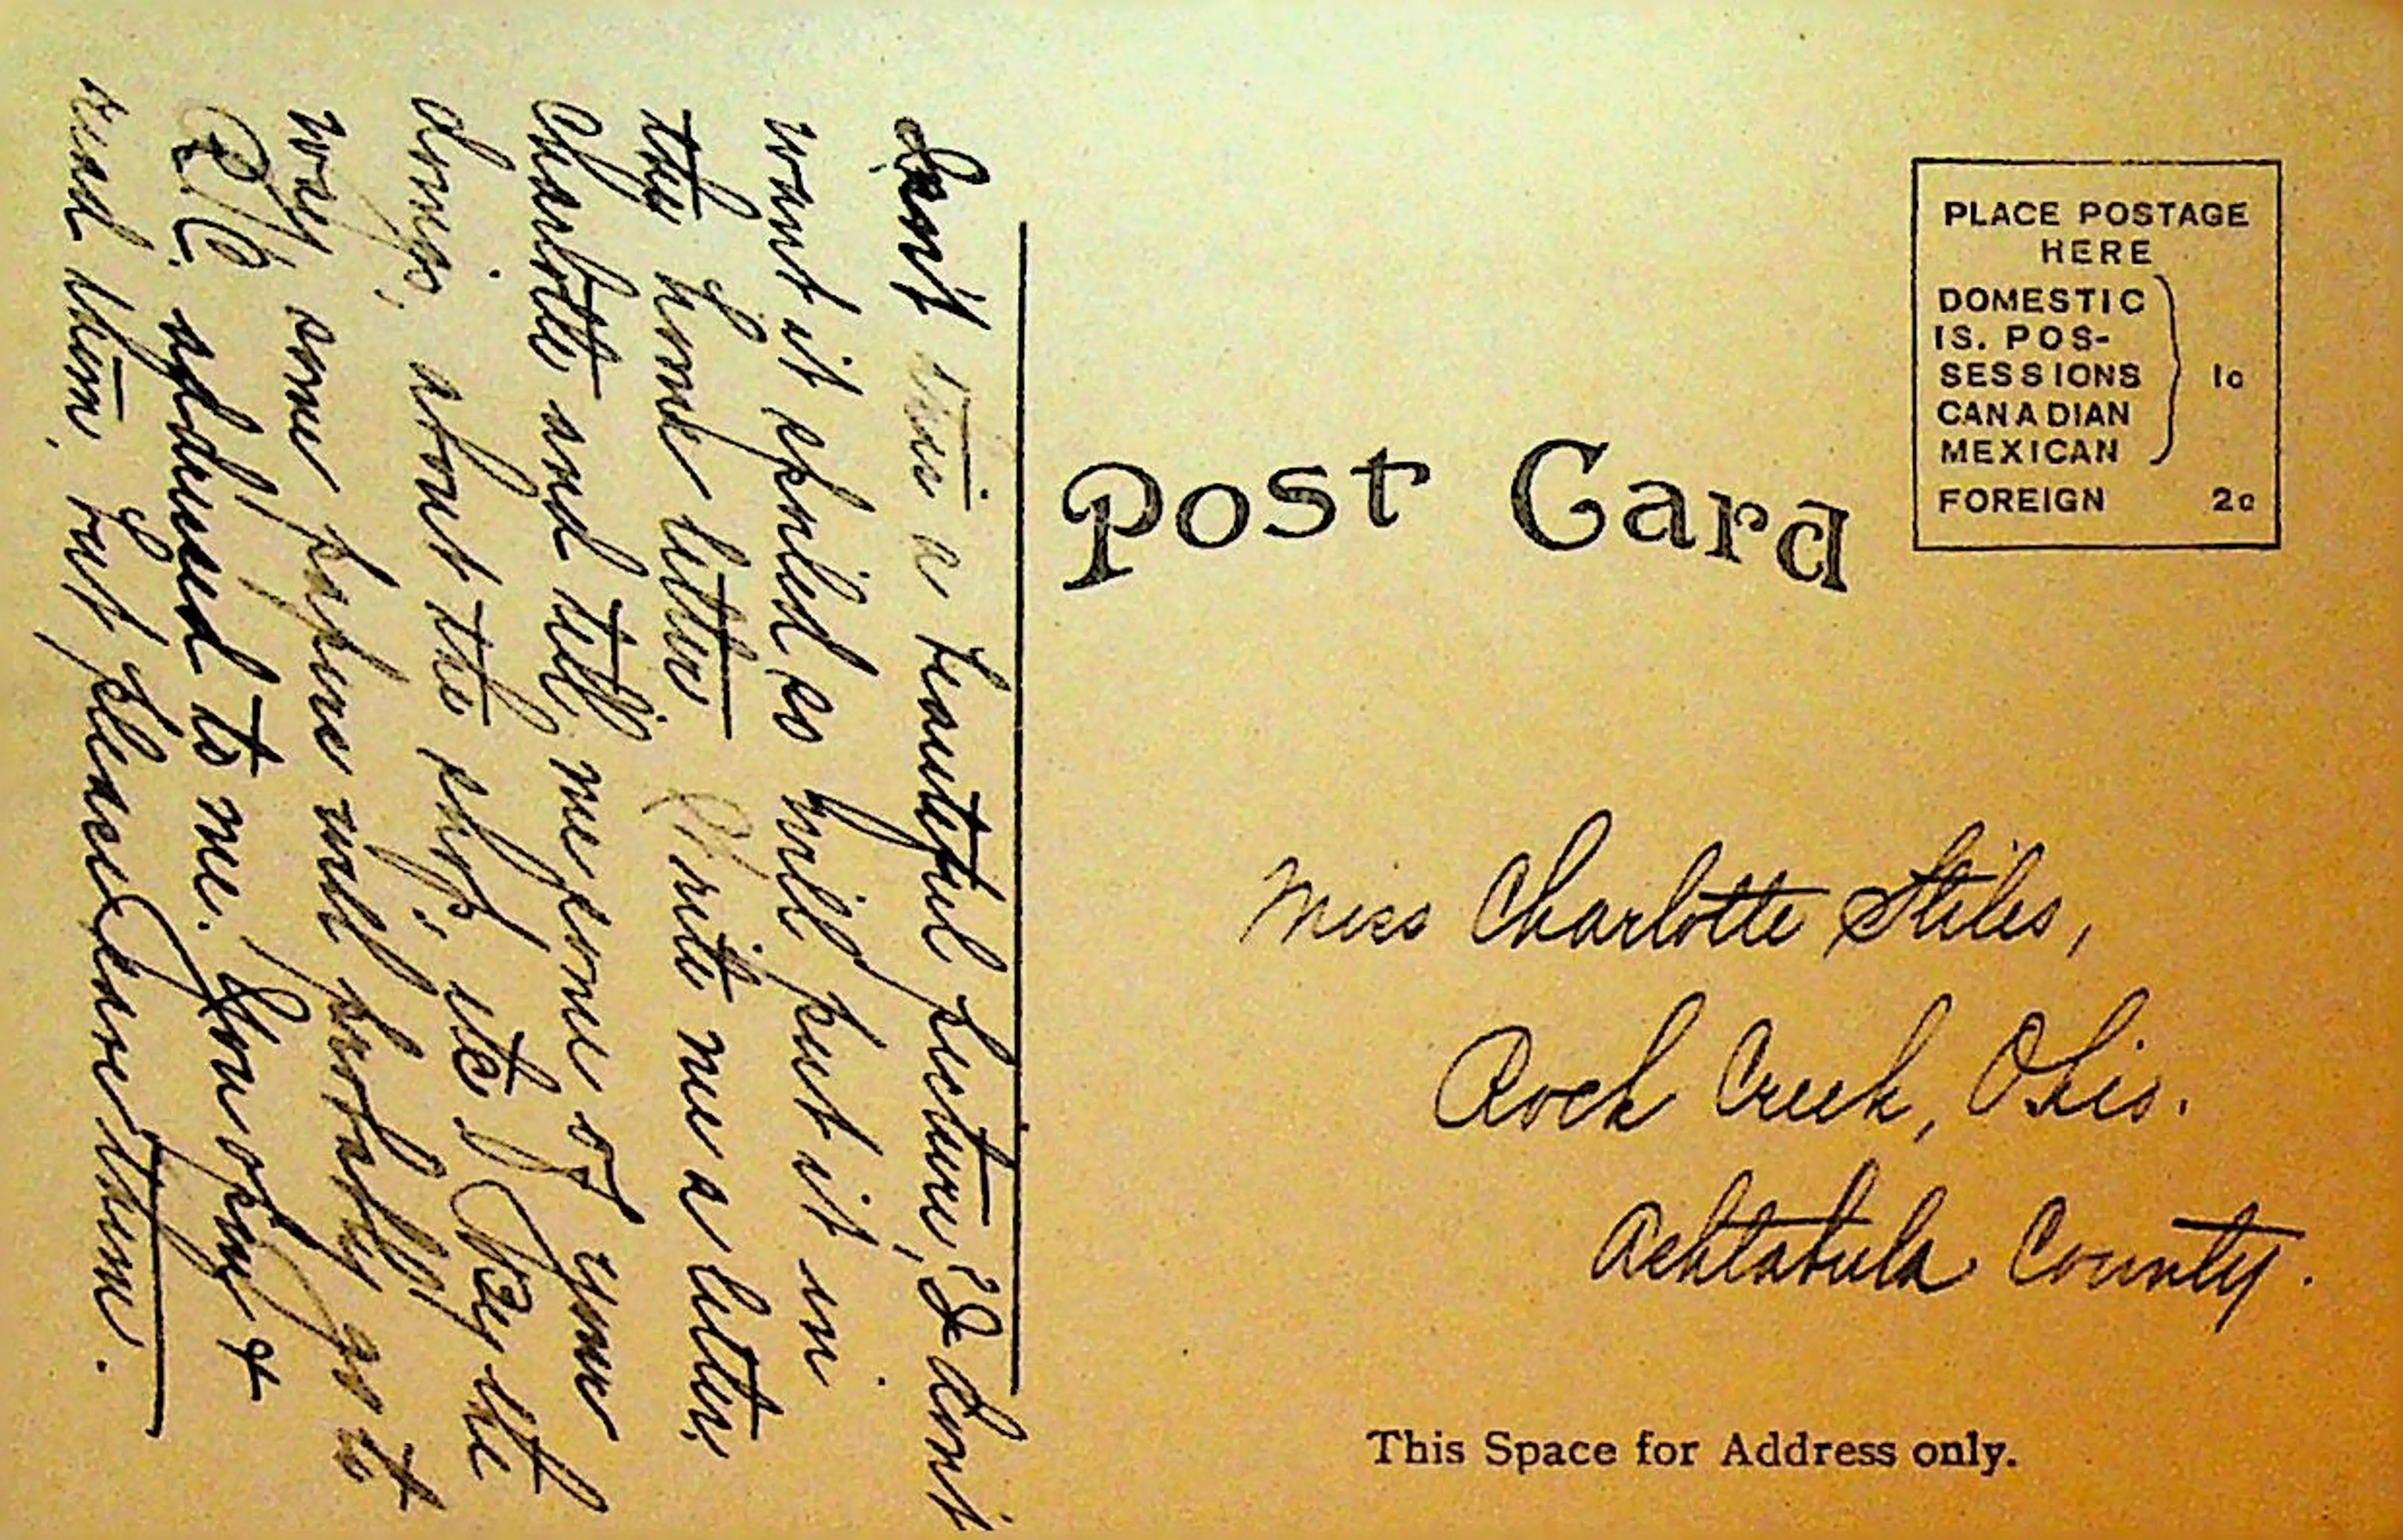 Isn't this a beautiful picture, I dont
want it spoiled so will put it in
the home letter. Write me a letter,
Charlotte and tell me some of your
doings, about the shop, etc. By the
way some papers will probably go to
R.C. addressed to me. You open &
read them, but please save them.
Post Card
PLACE POSTAGE
HERE
DOMESTIC
IS. POS-
SESSIONS
CANADIAN
MEXICAN
1c
FOREIGN 2c
Miss Charlotte Stiles,
Rock Creek, Ohio.
Ashtabula County.
This Space for Address only.